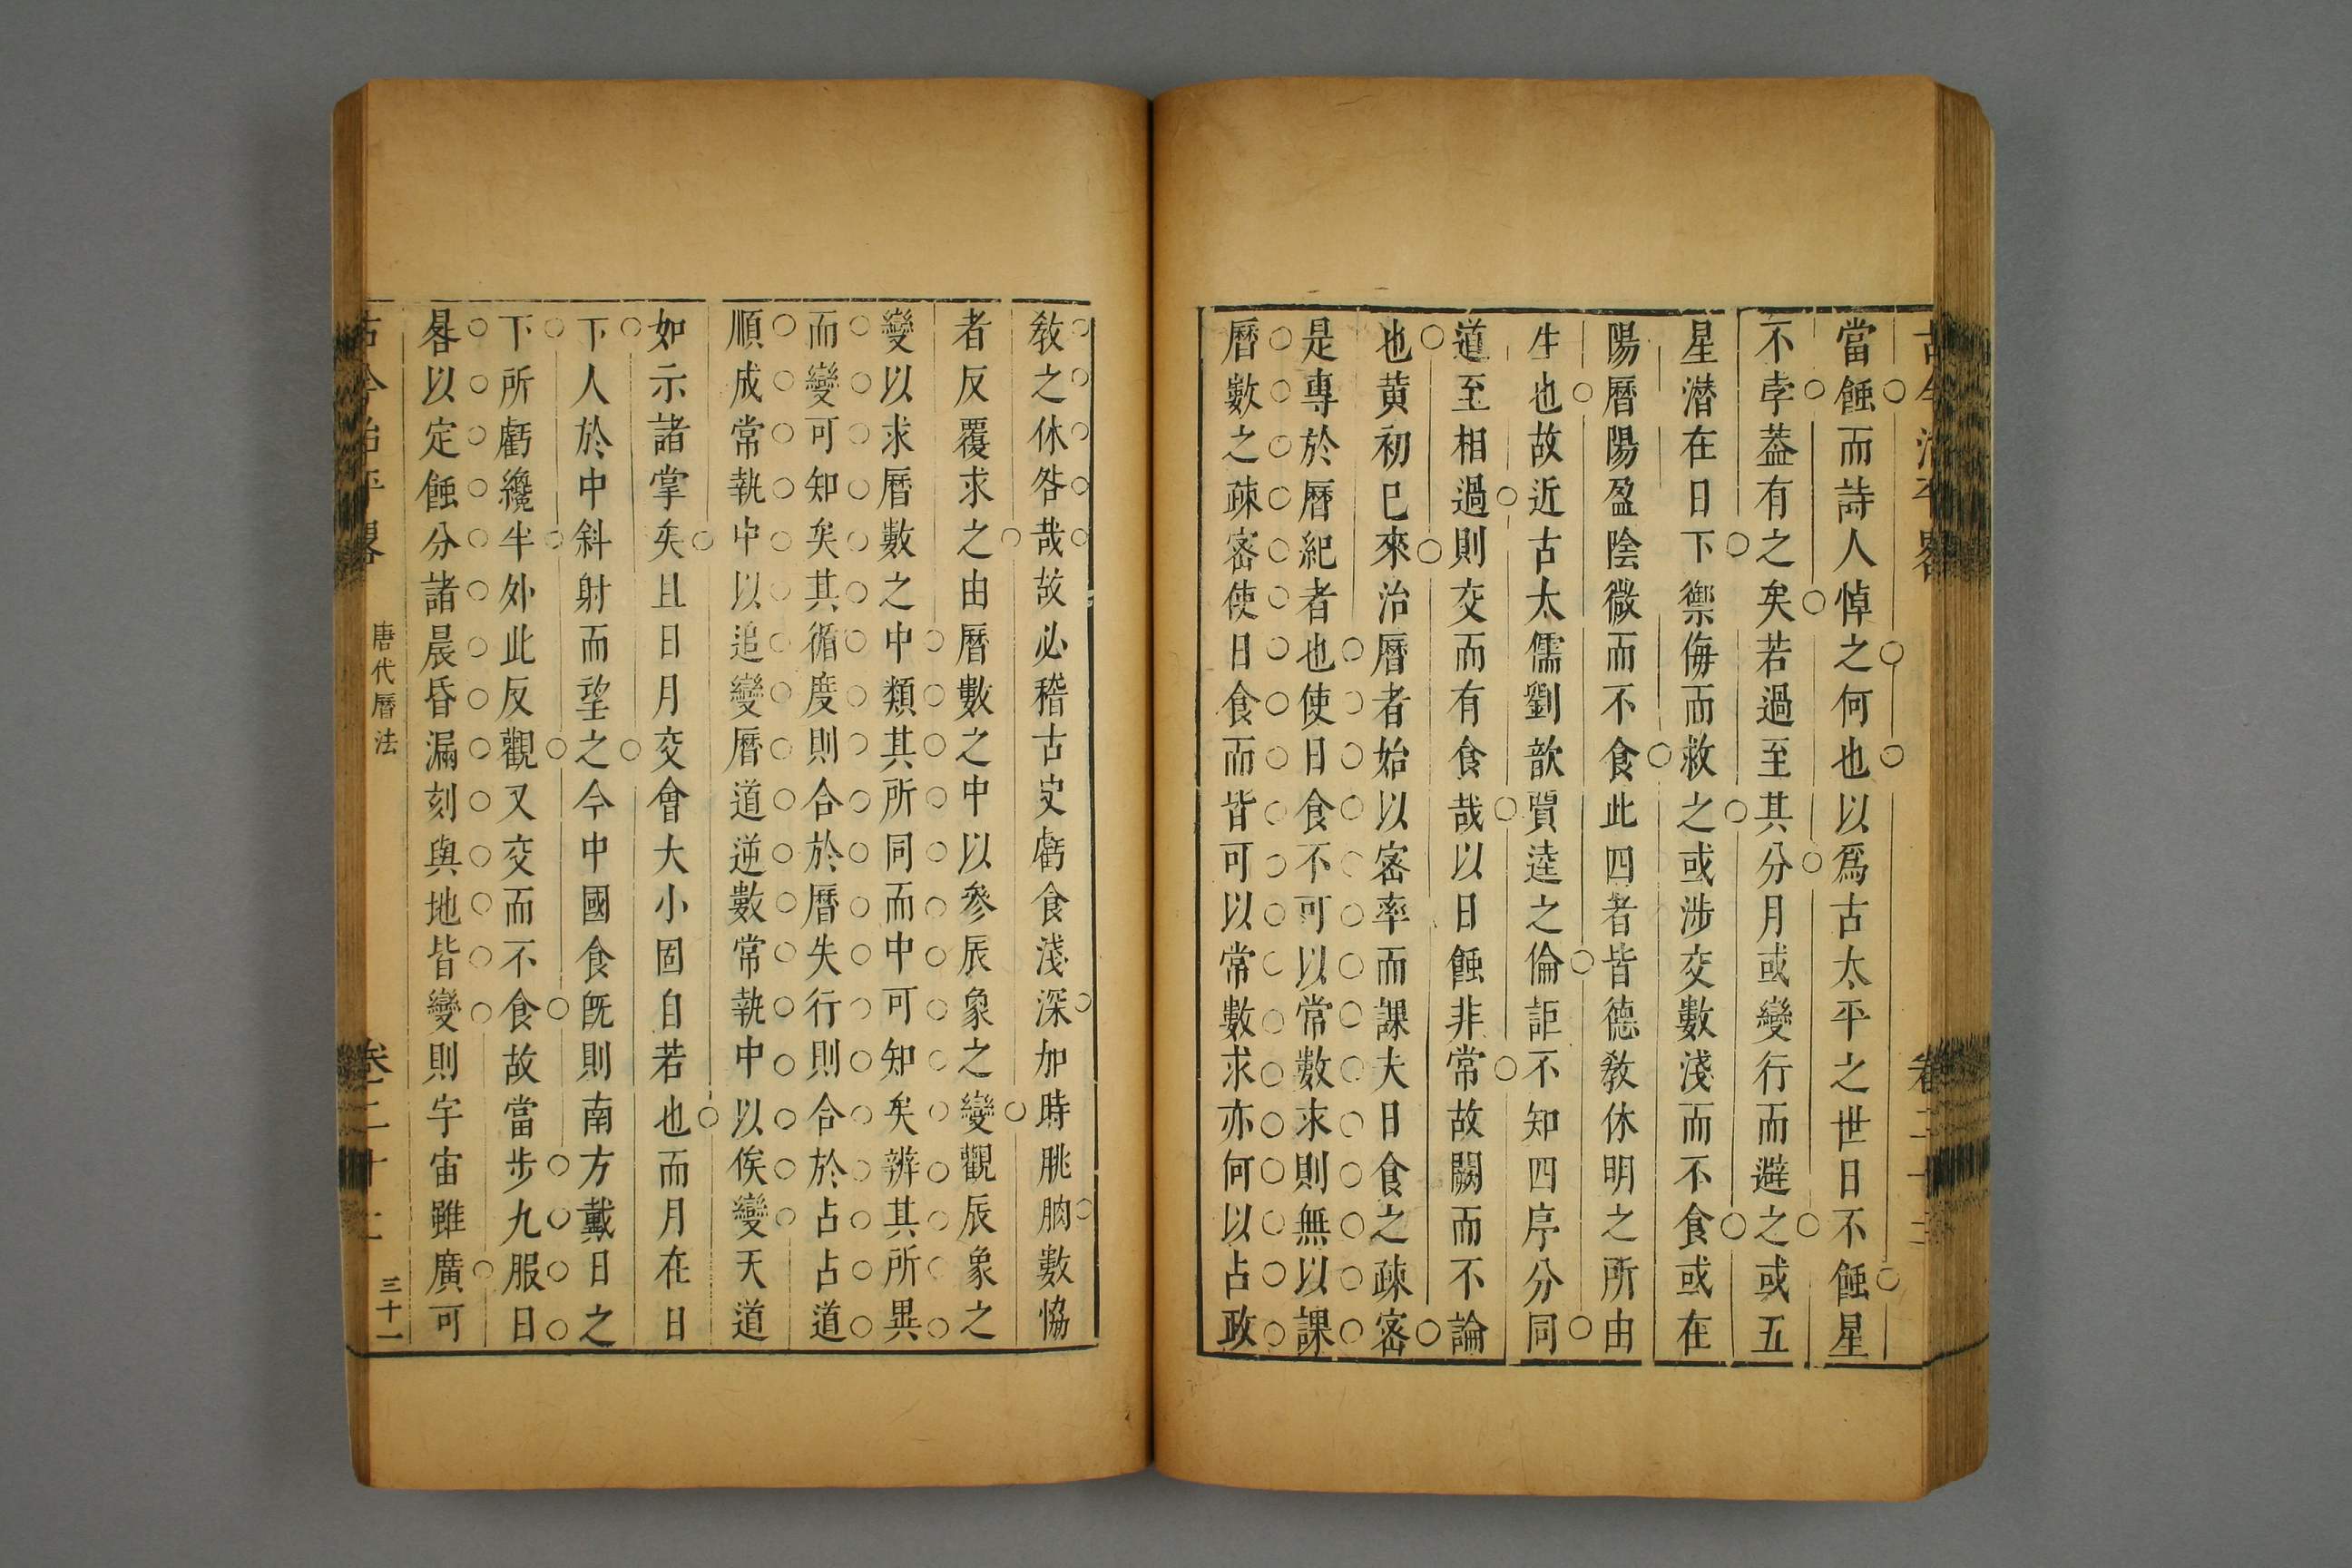 當蝕而詩人悼之何也以爲古太平之世日不蝕星
不孛葢有之矣若過至其分月或變行而避之或五
星潜在日下禦侮而救之或涉交數淺而不食或在
陽曆陽盈陰微而不食此四者皆德敎休明之所由
生也故近古太儒劉歆賈逵之倫詎不知四序分同
道至相過則交而有食哉以日蝕非常故闕而不論
也黄初已來治曆者始以密率而課夫日食之疎密
是專於曆紀者也使日食不可以常數求則無以課
曆數之疎密使日食而皆可以常數求亦何以占政
敎之休咎哉故必稽古史虧食淺深加時朓朒數恊
者反覆求之由曆數之中以參辰象之變觀辰象之
變以求曆數之中類其所同而中可知矣辨其所異
而變可知矣其循度則合於曆失行則合於占占道
順成常執中以追變曆道逆數常執中以俟變天道
如示諸掌矣且日月交會大小固自若也而月在日
下人於中斜射而望之今中國食旣則南方戴日之
下所虧纔半外此反觀又交而不食故當步九服日
晷以定蝕分諸晨昏漏刻與地皆變則宇宙雖廣可
唐代曆法
三十一